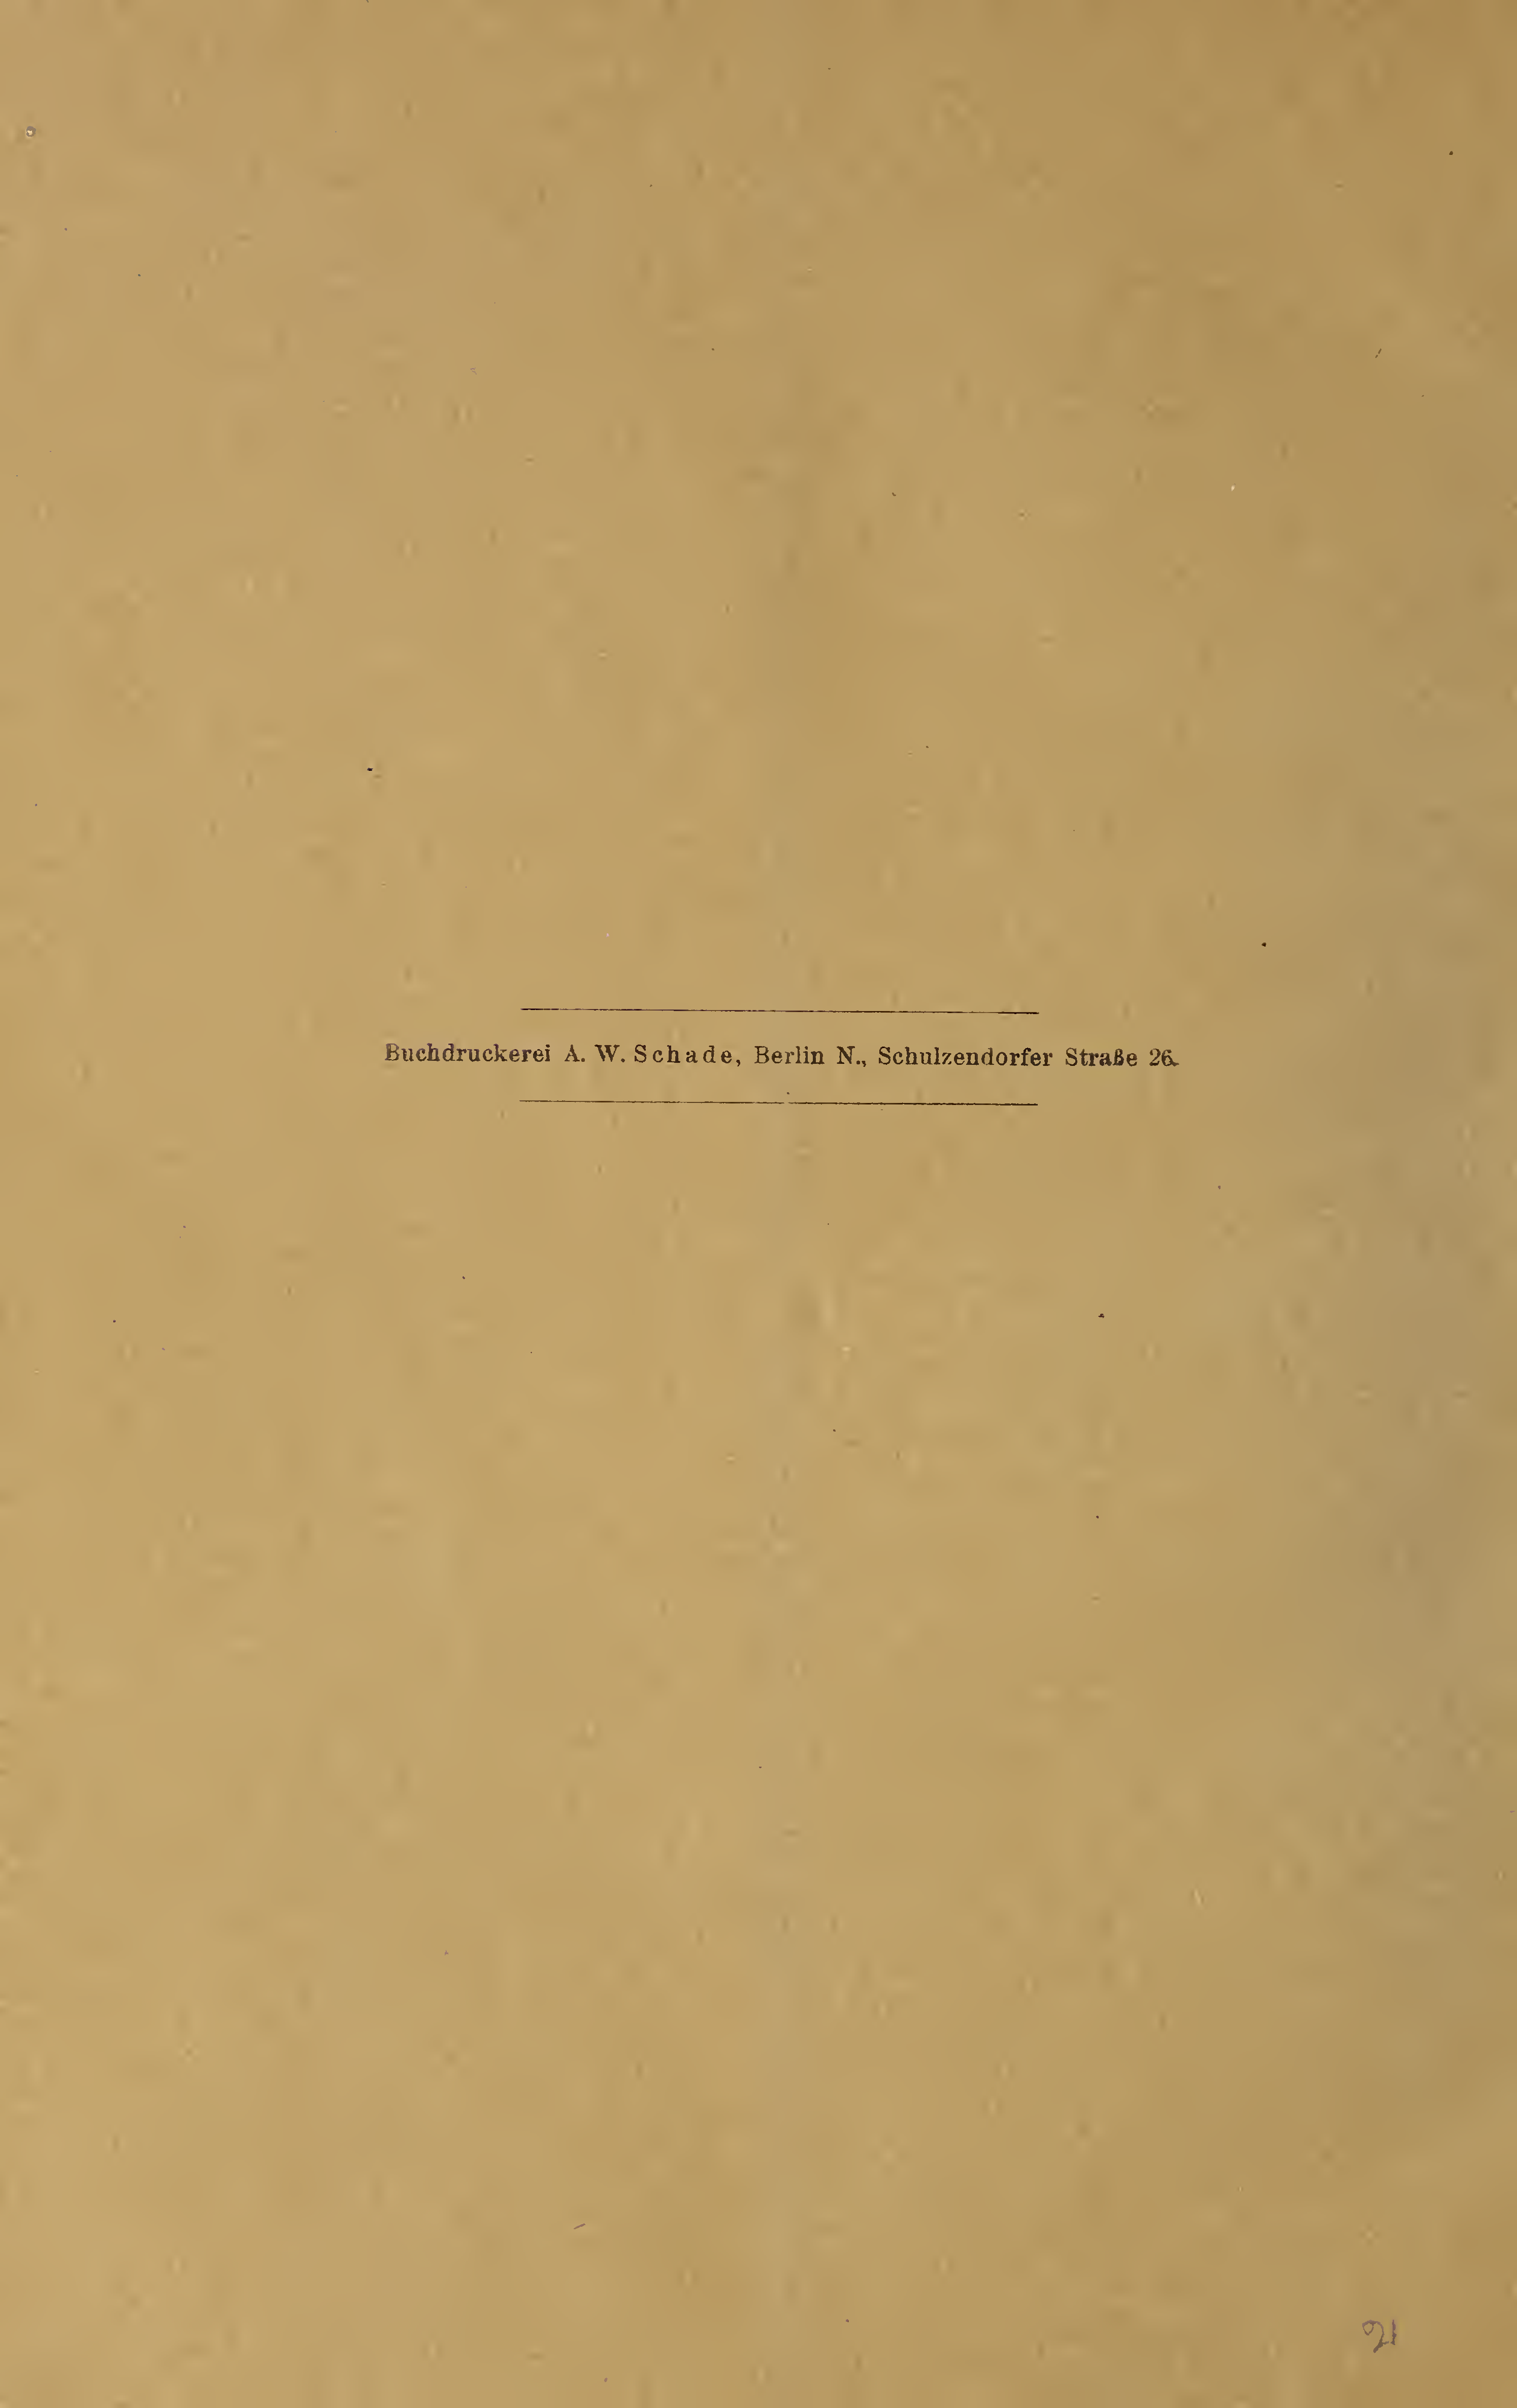 Buchdruckerei A. W. Schade, Berlin N., Schulzendorfer Straße 26.